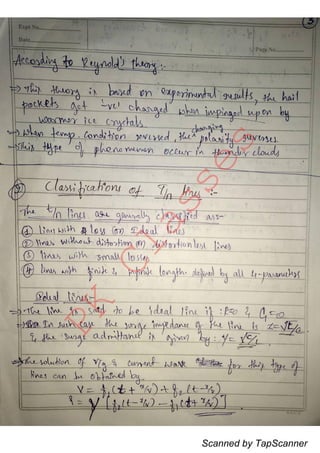 3
Page No.
Date
Page No.
According to Reynold's theory:-
=> This theory is based on experimental results, the hail
pockets get -ve' charged when impinged upon by
warmer ice crystals
=> When temp. condition reversed, the charging polarity reverses.
=> This type of phenomenon occur in thunder clouds
Classifications of T/n lines :-
The t/n lines are generally classified as:-
① lines with loss (or) Ideal lines
② lines without distortion (or) distortionless lines
③ lines with small losses
④ lines with finite & infinite length defined by all 4-parameters
Ideal lines-
=> The line is said to be ideal line if : R=0 & G=0
=> In such case the surge impedance of the line is z=√L/c
& the surge admittance is given by: y=√c/L.
=> The solution of v/g & current wave for this type of
lines can be obtained by
V = f₁(t + x/v) + f₂(t-x/v)
i = y[f₂(t-x/v) - f₁(t+x/v)]
Scanned by TapScanner